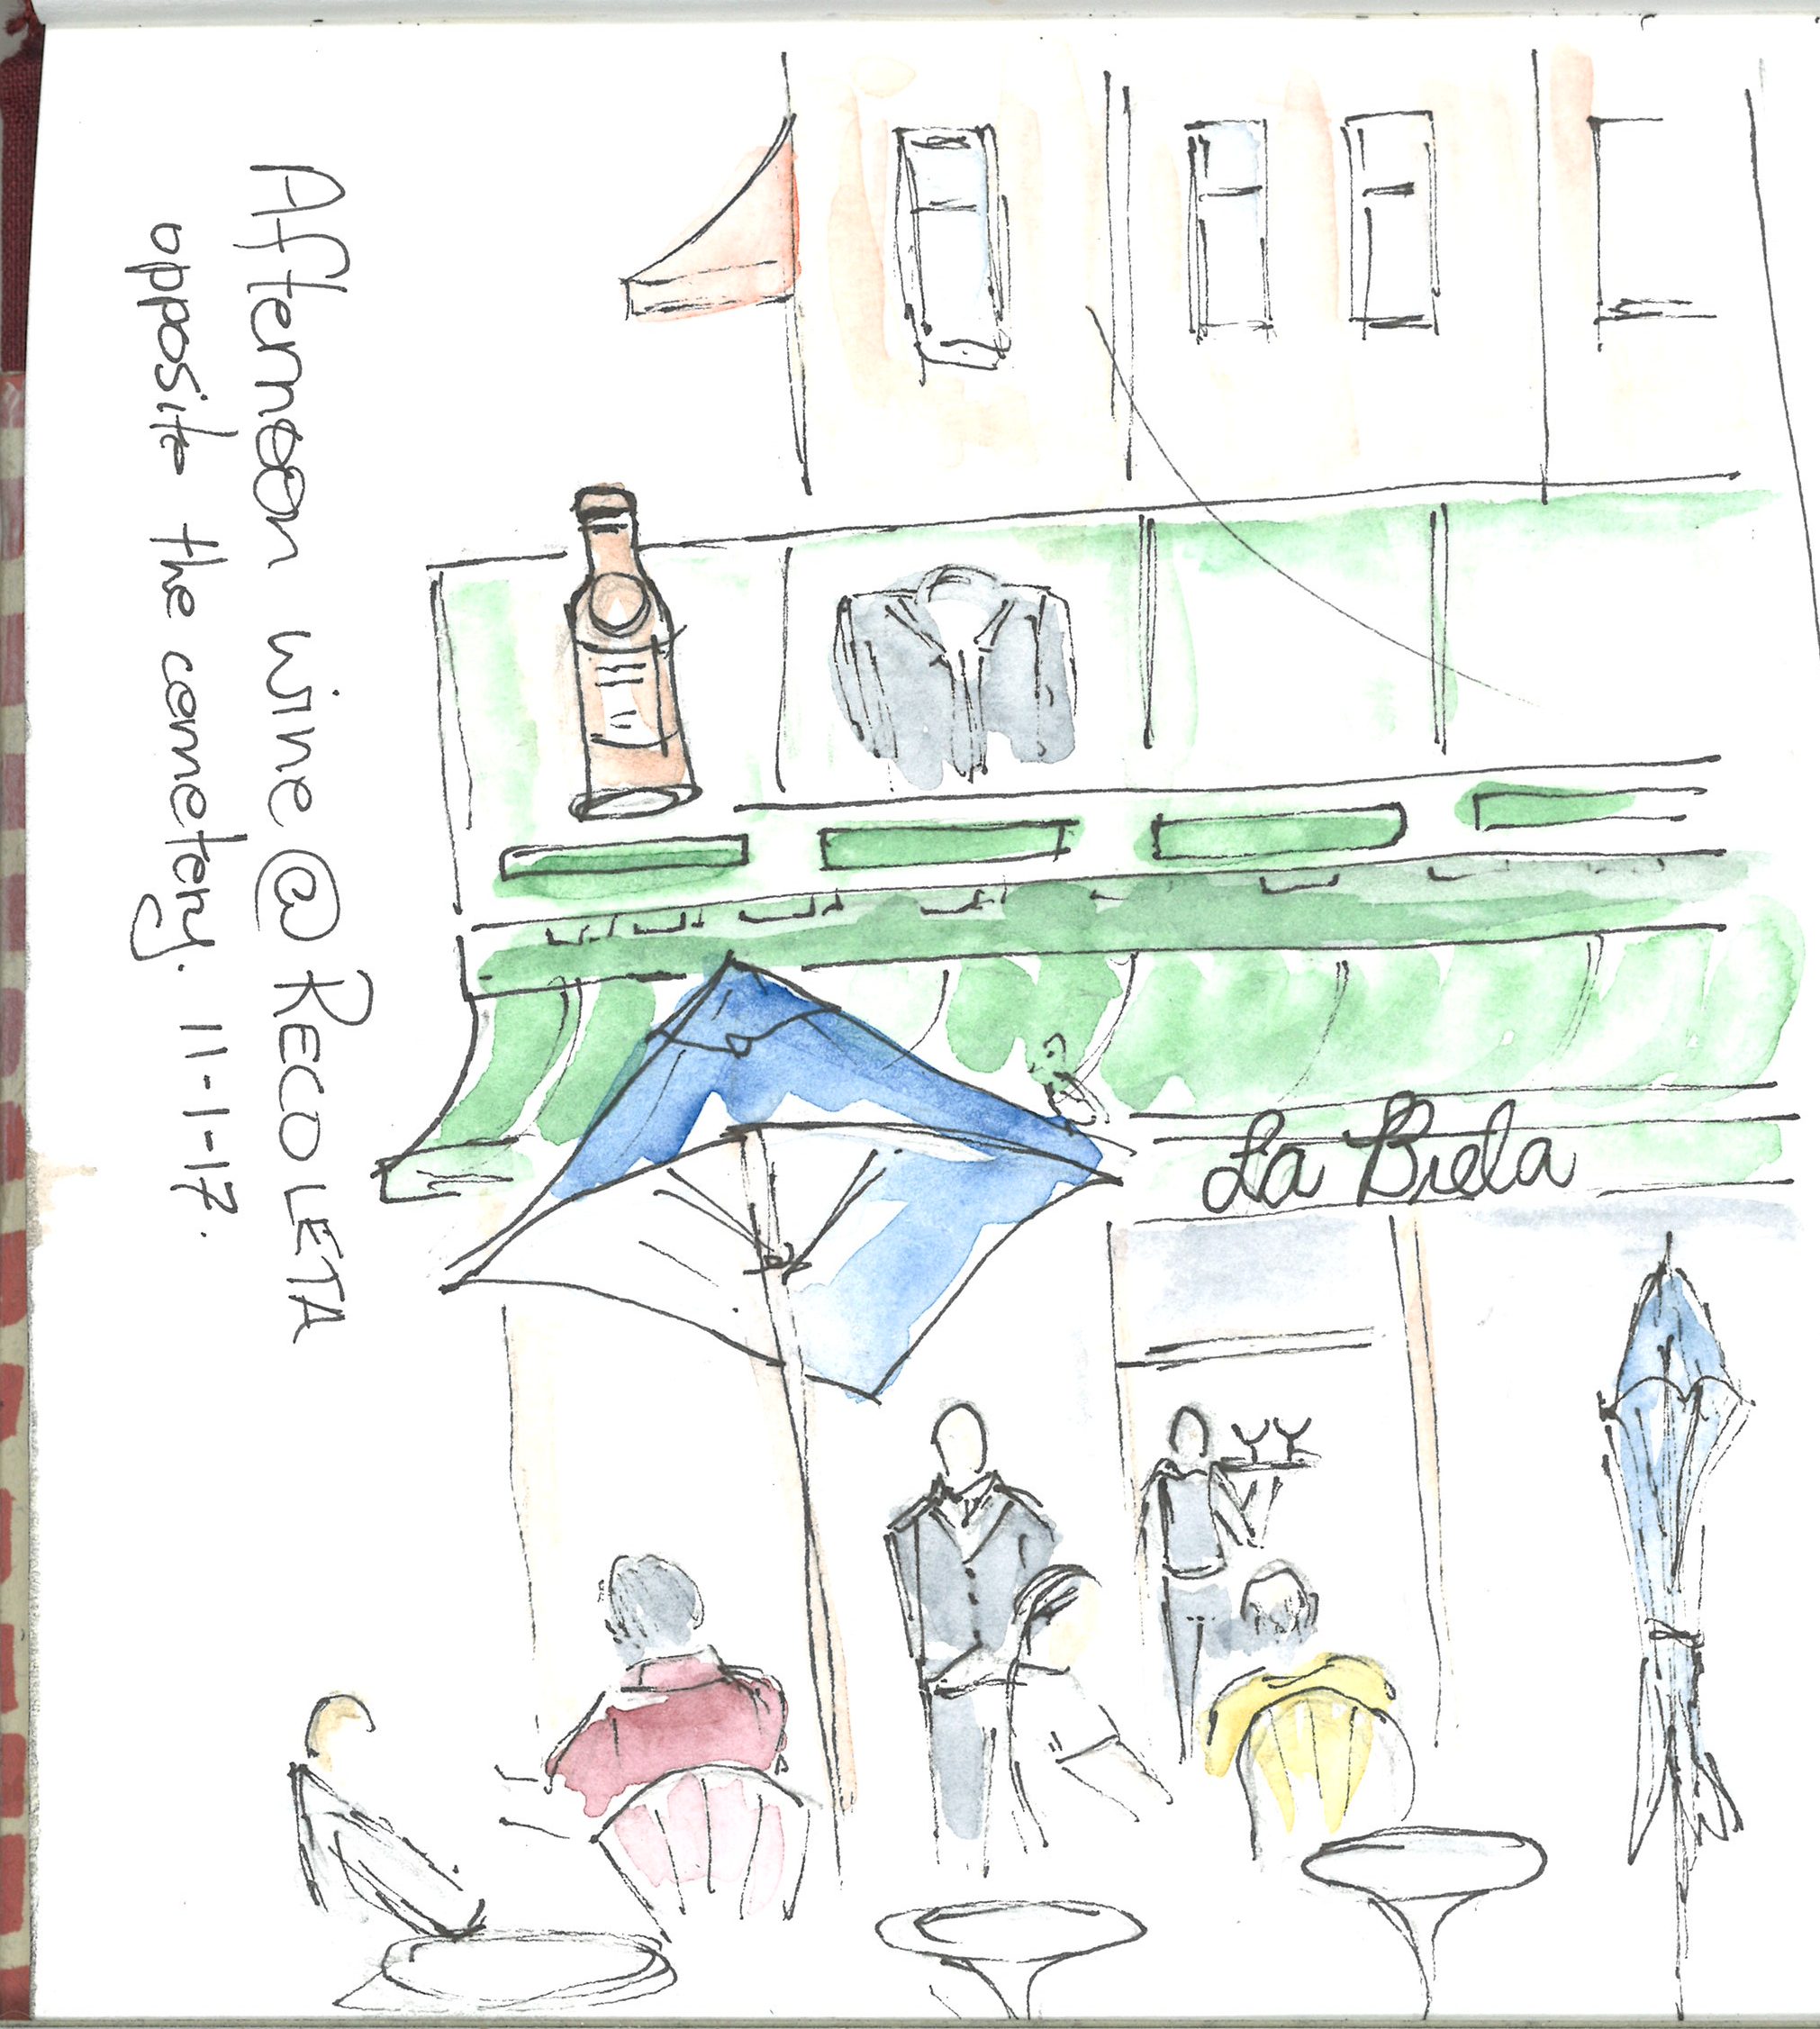 Afternoon wine @ RECOLETA
opposite the cemetery. 11-1-17.
La Biela